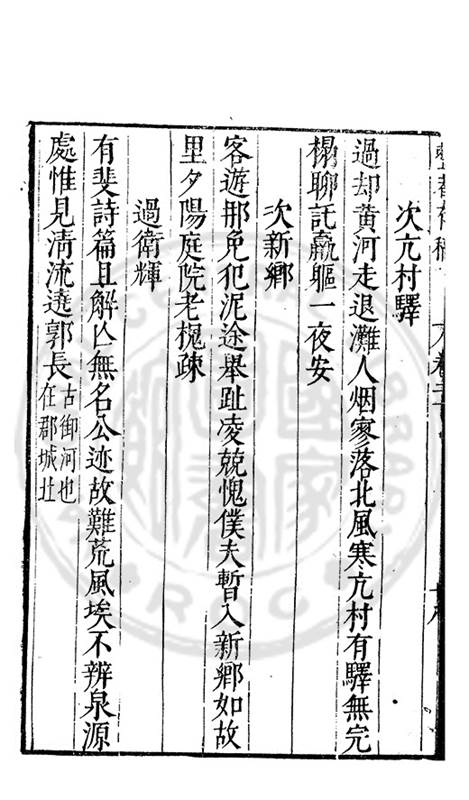 次亢村驛
過却黄河走退灘人烟寥落北風寒亢村有驛無完
榻聊託羸軀一夜安
次新鄉
客遊那免犯泥途舉趾凌兢愧僕夫暫入新鄉如故
里夕陽庭院老槐疎
過衛輝
有斐詩篇且解亾無名公迹故難荒風埃不辨泉源
處惟見淸流遶郭長古御河也在郡城北